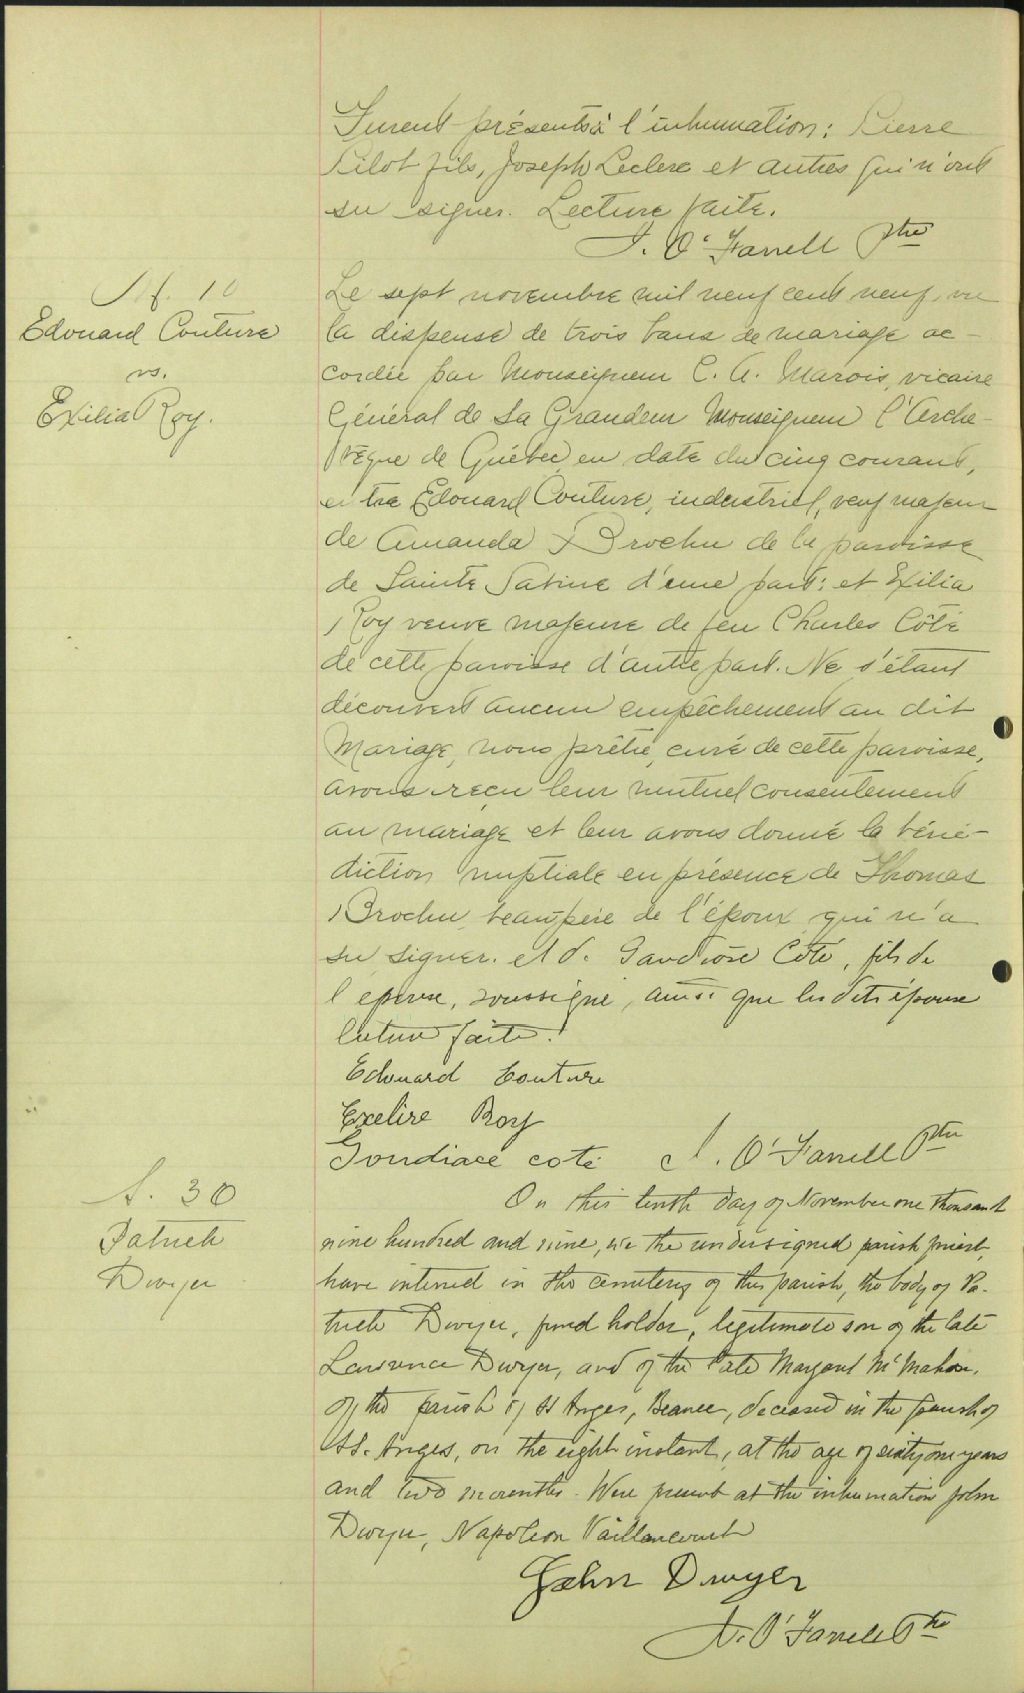 Furent présents à l'inhumation: Pierre
Pilot fils, Joseph Leclerc et autres qui n'ont
su signer. Lecture faite.
J. O'Farrell Ptre
M. 10
Edouard Couture
vs.
Exilia Roy.
Le sept novembre mil neuf cent neuf, vu
la dispense de trois bans de mariage ac-
cordée par Monseigneur C. A. Marois, vicaire
Général de Sa Grandeur Monseigneur l'Arche-
vêque de Québec en date du cinq courant,
entre Edouard Couture, industriel, veuf majeur
de Amanda Brochu de la paroisse
de Sainte Sabine d'une part: et Exilia
Roy veuve majeure de feu Charles Côté
de cette paroisse d'autre part. Ne s'étant
découvert aucun empêchement au dit
Mariage, nous prêtre, curé de cette paroisse,
avons reçu leur mutuel consentement
au mariage et leur avons donné la béné-
diction nuptiale en présence de Thomas
Brochu, beau-père de l'époux qui n'a
su signer. et de Gaudiose Coté, fils de
l'epouse, soussigné, ainsi que les dits épouse
lecture faite.
Edouard Couture
Exelire Roy
Gondiace coté J. O'Farrell Ptre
S. 30
Patrick
Dwyer
On this tenth day of November one thousand
nine hundred and nine, we the undersigned parish priest,
have interred in the cemetery of this parish, the body of Pa-
trick Dwyer, fund holder, legitimate son of the late
Lawrence Dwyer, and of the late Margaret McMahon,
of the parish of SS Anges, Beauce, deceased in the parish of
SS. Anges, on the eight instant, at the age of sixty one years
and two months. Were present at the inhumation John
Dwyer, Napoleon Vaillancourt
John Dwyer
J. O'Farrell Ptre